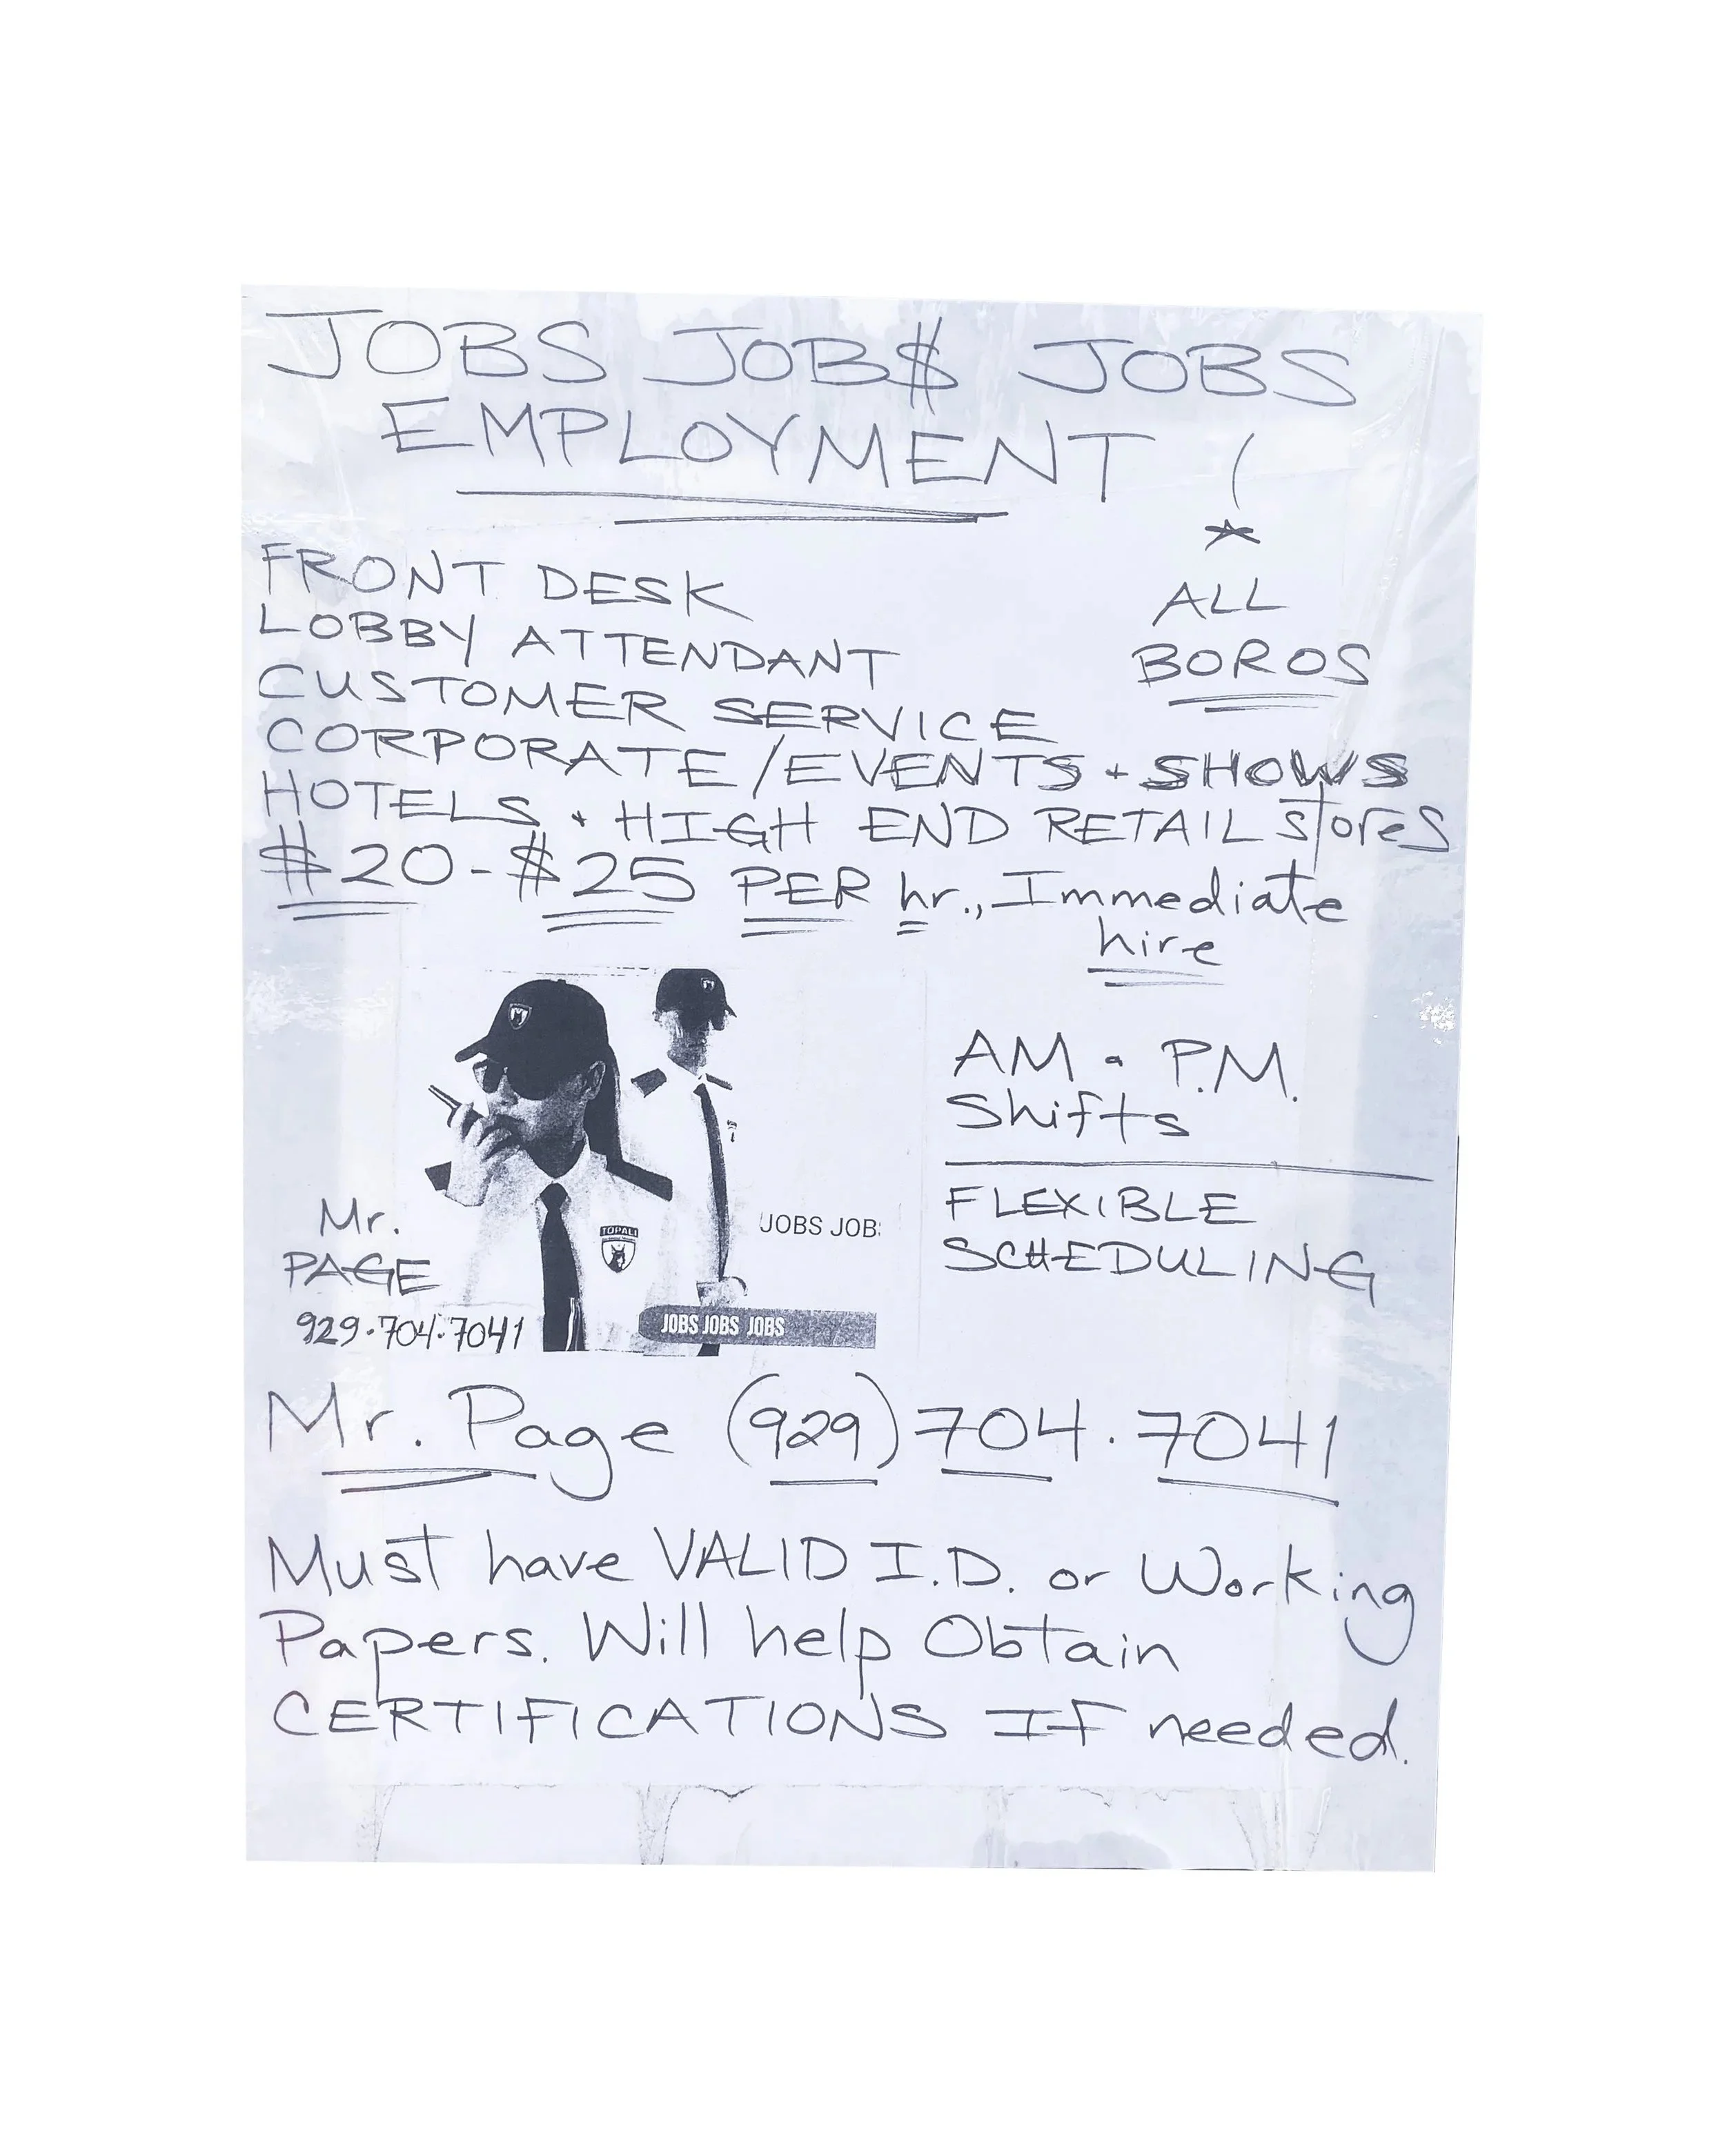 JOBS JOB$ JOBS
EMPLOYMENT !
* ALL
BOROS
FRONT DESK
LOBBY ATTENDANT
CUSTOMER SERVICE
CORPORATE/EVENTS + SHOWS
HOTELS + HIGH END RETAIL stores
$20-$25 PER hr., Immediate
hire
AM • P.M.
Shifts
FLEXIBLE
SCHEDULING
TOPALI
JOBS JOB
JOBS JOBS JOBS
Mr.
PAGE
929.704.7041
Mr. Page (929) 704.7041
Must have VALID I.D. or Working
Papers. Will help Obtain
CERTIFICATIONS IF needed.